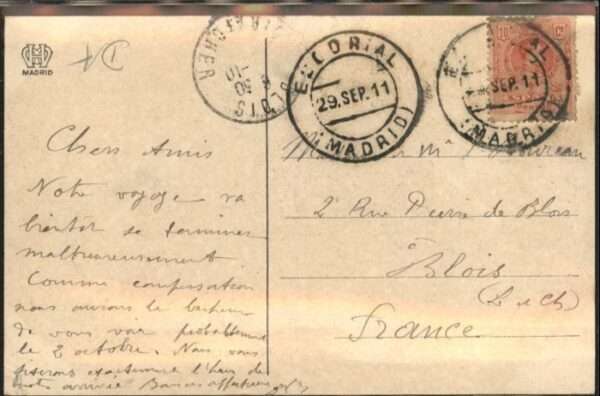 MADRID
BLOIS
LOIR-ET-CHER
30
-10
EL ESCORIAL
29.SEP.11
(MADRID)
SEP.11
(MADRID)
Chers Amis
Notre voyage va
bientôt se terminer
malheureusement
Comme compensation
nous aurons le bonheur
de vous voir probablement
le 2 octobre. Nous vous
fixerons exactement l'heure de
notre arrivée Bonnes affections
Monsieur et Mme
2 Rue Pierre de Blois
à
Blois
(L et Ch)
France